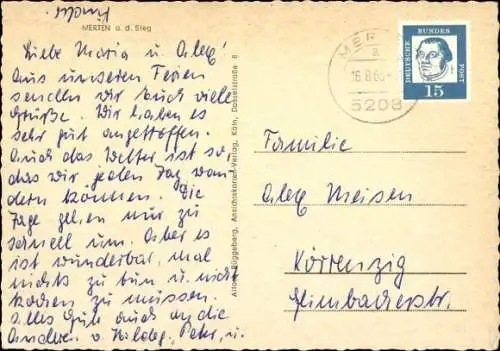 Kinder.
MERTEN a. d. Sieg
Liebe Maria u. Alex!
Aus unseren Ferien
senden wir Euch viele
Grüße. Wir haben es
sehr gut angetroffen.
Auch das Wetter ist so,
das wir jeden Tag wan-
dern können. Die
Tage gehen nur zu
schnell um. Aber es
ist wunderbar, mal
nichts zu tun u. nicht
kochen zu müssen.
Alles Gute auch an die
Andren. v. Hildeg., Peter, u.
Ansichtskarten-Verlag, Köln, Dasselstraße 8
MER
a
5208
DEUTSCHE BUNDESPOST
15
Familie
Alex Meisen
Körrenzig
Glimbacherstr.